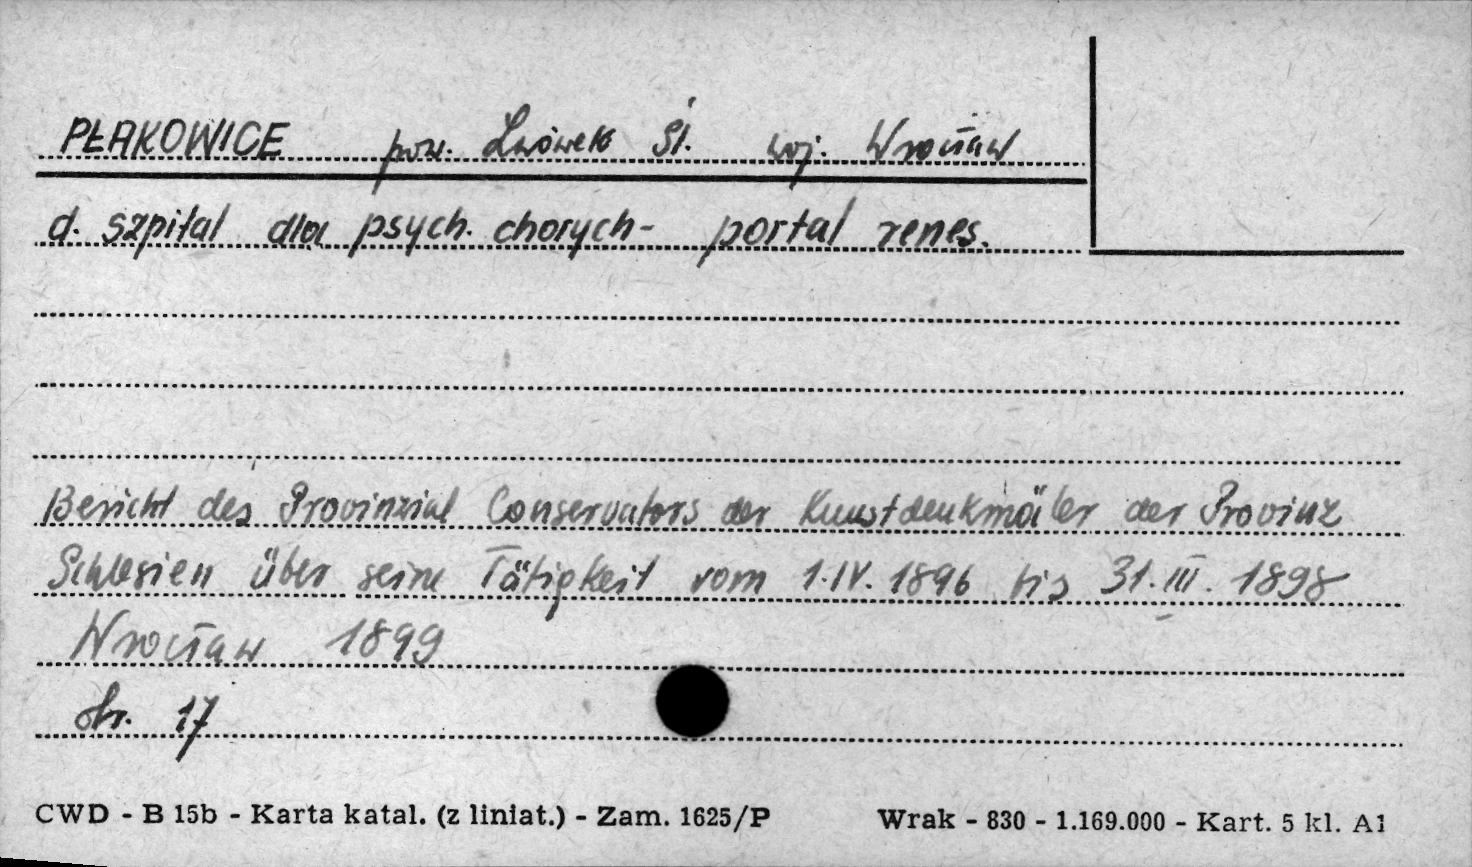 PŁAKOWICE pow. Lwówek Śl. woj. Wrocław
d. szpital dla psych. chorych- portal renes.
Bericht des Provinzial Conservators der Kunstdenkmäler der Provinz
Schlesien über seine Tätigkeit vom 1.IV. 1896 bis 31.III. 1898
Wrocław 1899
str. 17
CWD - B 15b - Karta katal. (z liniat.) - Zam. 1625/P Wrak - 830 - 1.169.000 - Kart. 5 kl. A1